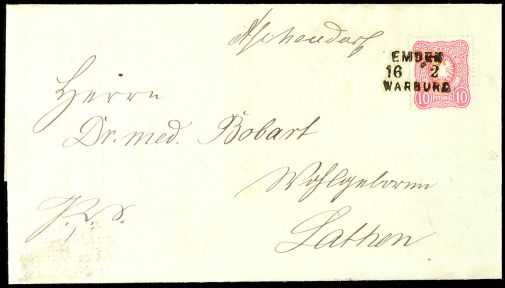 Aschendorf
EMDEN
16 2
WARBURG
10 PFENNIG 10
Herrn
Dr. med. Bobart
Wohlgeboren
Lathen